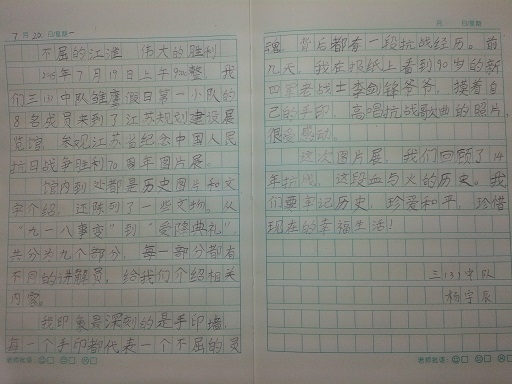 7月20日星期一
不屈的江淮 伟大的胜利
2015年7月19日上午9:00整，我
们三(3)中队雏鹰假日第一小队的
8名成员来到了江苏规划建设展
览馆，参观江苏省纪念中国人民
抗日战争胜利70周年图片展。
馆内到处都是历史图片和文
字介绍，还陈列了一些文物。从
“九一八事变”到“受降典礼”
共分为九个部分，每一部分都有
不同的讲解员，给我们介绍相关
内容。
我印象最深刻的是手印墙，
每一个手印都代表一个不屈的灵
老师批语：
月 日星期
魂，背后都有一段抗战经历。前
几天，我在报纸上看到90岁的新
四军老战士李剑锋爷爷，摸着自
己的手印，高唱抗战歌曲的照片，
很受感动。
这次图片展，我们回顾了14
年抗战，这段血与火的历史。我
们要牢记历史，珍爱和平，珍惜
现在的幸福生活！
三(3)中队
杨宇辰
老师批语：